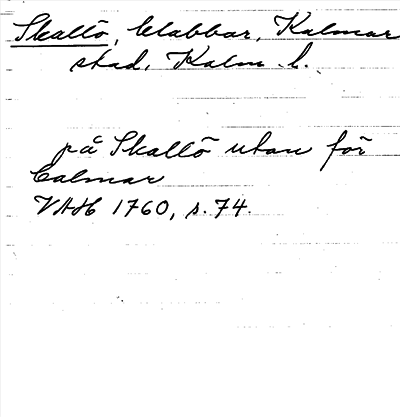 Skallö, klabbar, Kalmar
stad, Kalm l.
på Skallö utan för
Calmar
VAH 1760, s. 74.